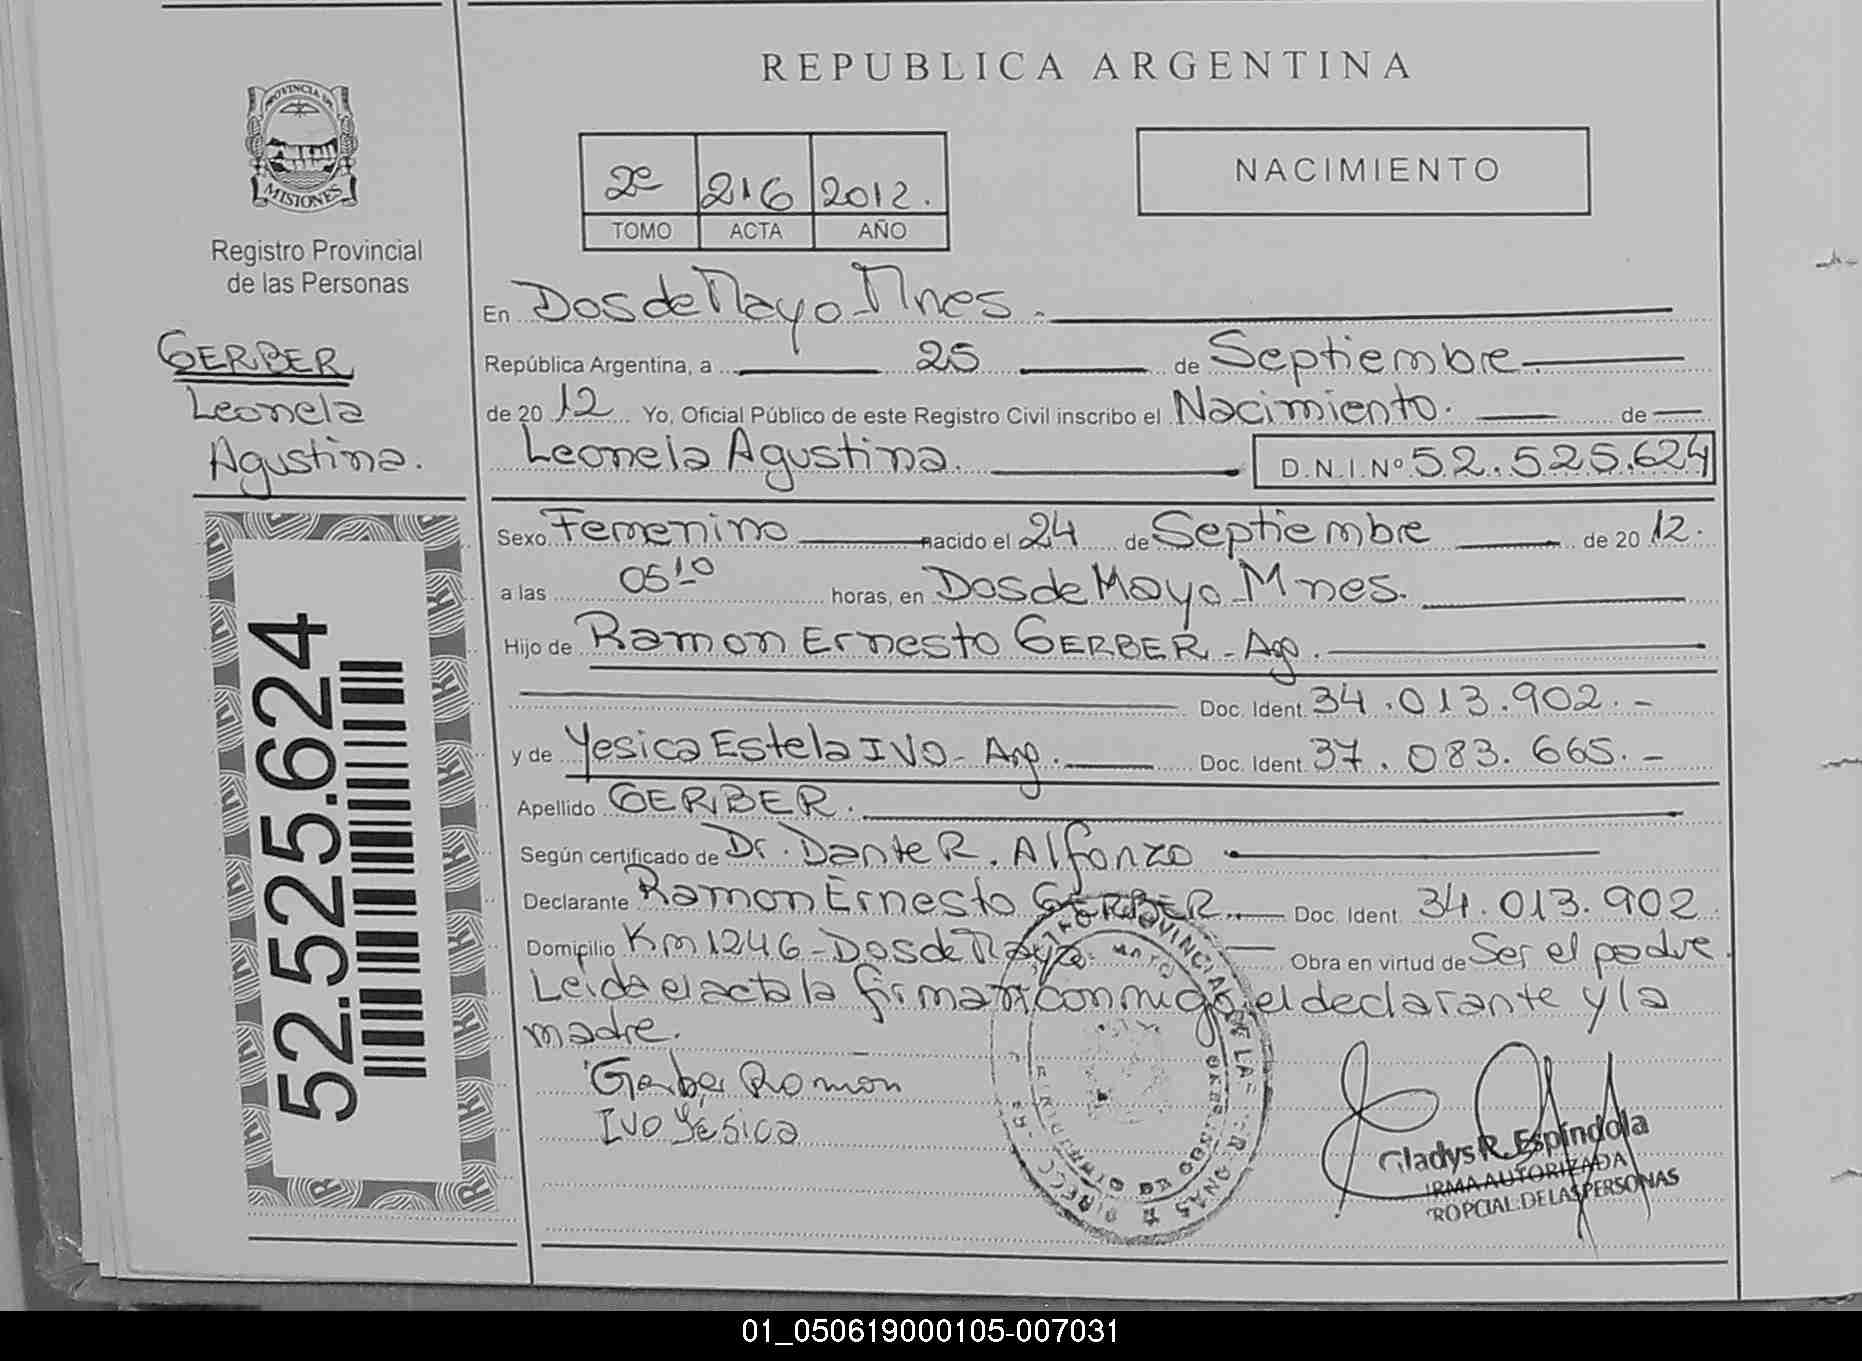 REPUBLICA ARGENTINA
PROVINCIA DE
MISIONES
Registro Provincial
de las Personas
GERBER
Leonela
Agustina.
52.525.624
2º 216 2012.
TOMO ACTA AÑO
NACIMIENTO
En Dos de Mayo - Mnes.
República Argentina, a 25 de Septiembre
de 2012 Yo, Oficial Público de este Registro Civil inscribo el Nacimiento. de
Leonela Agustina. D.N.I.Nº 52.525.624
Sexo Femenino nacido el 24 de Septiembre de 2012.
a las 05:10 horas, en Dos de Mayo - Mnes.
Hijo de Ramon Ernesto GERBER - Arg.
Doc. Ident. 34.013.902.-
y de Yesica Estela IVO - Arg. Doc. Ident. 37.083.665.-
Apellido GERBER.
Según certificado de Dr. Dante R. Alfonzo
Declarante Ramon Ernesto GERBER Doc. Ident. 34.013.902
Domicilio Km 1246 - Dos de Mayo Obra en virtud de Ser el padre.
Leida el acta la firman conmigo, el declarante y la
madre.
Gerber Ramon
IVO Yésica
Gladys R. Espíndola
FIRMA AUTORIZADA
R. PCIAL. DE LAS PERSONAS
01_050619000105-007031